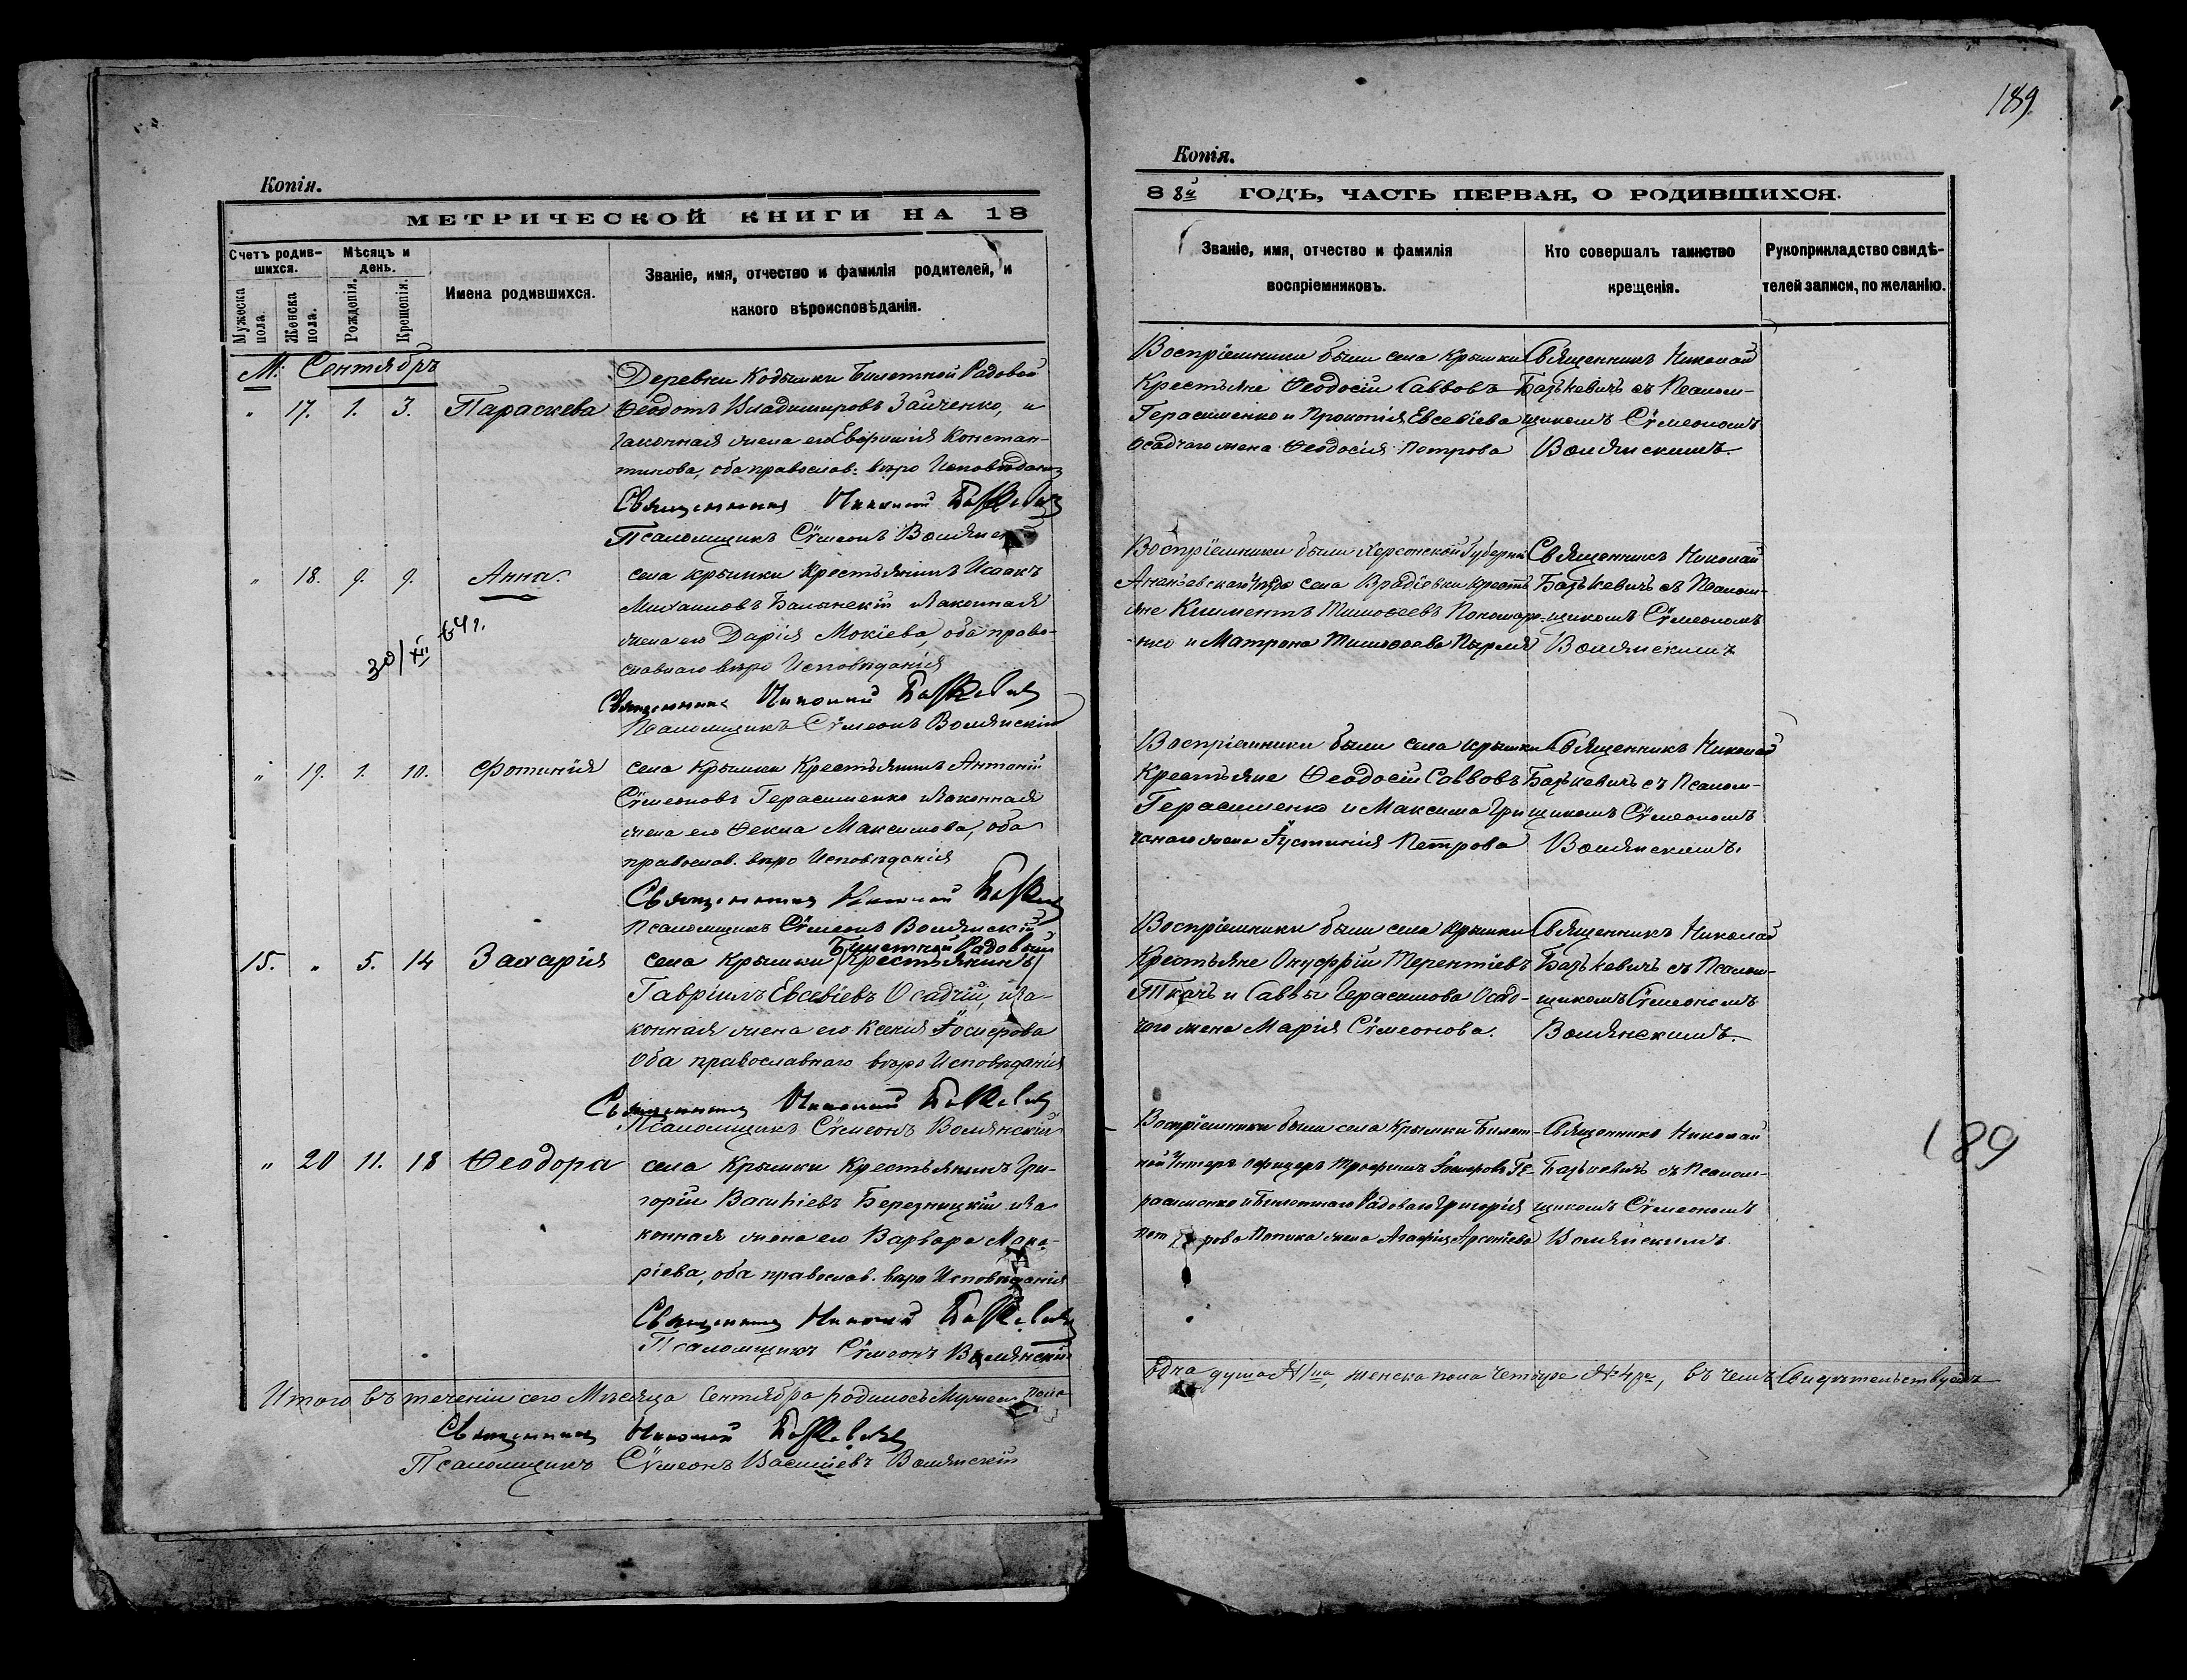 Копія.
МЕТРИЧЕСКОЙ КНИГИ НА 18
Счетъ родив-
шихся.
Мѣсяцъ и
день.
Мужеска
пола.
Женска
пола.
Рожденія.
Крещенія.
Имена родившихся.
Званіе, имя, отчество и фамилія родителей, и
какого вѣроисповѣданія.
М. Сентябрь
" 17. 1. 3. Параскева
Деревни Кодымки Билетной Радовой
Ѳеодотъ Владимировъ Зайченко, и
законная жена его Евфимія Констан-
тинова, оба православ. вѣро Исповѣданія
Священникъ Николай Базькевичъ
Псаломщикъ Сѵмеонъ Волянскій
" 18. 9. 9. Анна.
30/XII 64 г.
села Крымки Крестьянинъ Исаакъ
Михаиловъ Балынскій и законная
жена его Дарія Мокіева, оба право-
славнаго вѣро Исповѣданія
Священникъ Николай Базькевичъ
Псаломщикъ Сѵмеонъ Волянскій
" 19. 1. 10. Фотинія
села Крымки Крестьянинъ Антоній
Сѵмеоновъ Герасименко и законная
жена его Ѳекла Максимова, оба
православ. вѣро Исповѣданія
Священникъ Николай Базькевичъ
Псаломщикъ Сѵмеонъ Волянскій
15. " 5. 14 Захарія
Билетной Радовый
села Крымки (Крестьянинъ)
Гавріилъ Евсевіевъ Осадчій, и за-
конная жена его Ксенія
Оба православнаго вѣро Исповѣданія
Священникъ Николай Базькевичъ
Псаломщикъ Сѵмеонъ Волянскій
" 20 11. 18 Ѳеодора
села Крымки Крестьянинъ Гри-
горій Василіевъ Березницкій и за
конная жена его Варвара Мака-
ріева, оба православ. вѣро Исповѣданія
Священникъ Николай Базькевичъ
Псаломщикъ Сѵмеонъ Волянскій
Итого въ теченіи сего Мѣсяца Сентября родилось Мужеска пола
Священникъ Николай Базькевичъ
Псаломщикъ Сѵмеонъ Василіевъ Волянскій
189
Копія.
88й ГОДЪ, ЧАСТЬ ПЕРВАЯ, О РОДИВШИХСЯ.
Званіе, имя, отчество и фамилія
воспріемниковъ.
Кто совершалъ таинство
крещенія.
Рукоприкладство свидѣ-
телей записи, по желанію.
Воспріемники были села Крымки
Крестьяне Ѳеодосій Саввовъ
Герасименко и Прокопія Евсевіева
Осадчаго жена Ѳеодосія Петрова
Священникъ Николай
Базькевичъ съ Псалом-
щикомъ Сѵмеономъ
Волянскимъ.
Воспріемники были Херсонской Губерніи
Ананьевскаго Уѣзда села Врадіевки Кресть
яне Климентъ Тимоѳеевъ Пономаре-
-нко и Матрона Тимоѳеева
Священникъ Николай
Базькевичъ съ Псалом-
щикомъ Сѵмеономъ
Волянскимъ
Воспріемники были села Крымки
Крестьяне Ѳеодосій Саввовъ
Герасименко и Максима Гри
чанаго жена Іустинія Петрова
Священникъ Николай
Базькевичъ съ Псалом-
щикомъ Сѵмеономъ
Волянскимъ.
Воспріемники были села Крымки
Крестьяне Онуфрій Терентіевъ
Ткачъ и Саввы Герасимова Осад-
чаго жена Марія Сѵмеонова.
Священникъ Николай
Базькевичъ съ Псалом-
щикомъ Сѵмеономъ
Волянскимъ.
Воспріемники были села Крымки Билет-
ной Унтеръ Офицеръ Трофимъ Ге-
расименко и Билетнаго Радоваго Григорія
Петрова Попика жена Агафія Арсеніева
Священникъ Николай
Базькевичъ съ Псалом-
щикомъ Сѵмеономъ
Волянскимъ
189
Одна душа № 1на, женска пола четыре № 4ре, въ чемъ Свидѣтельствуемъ